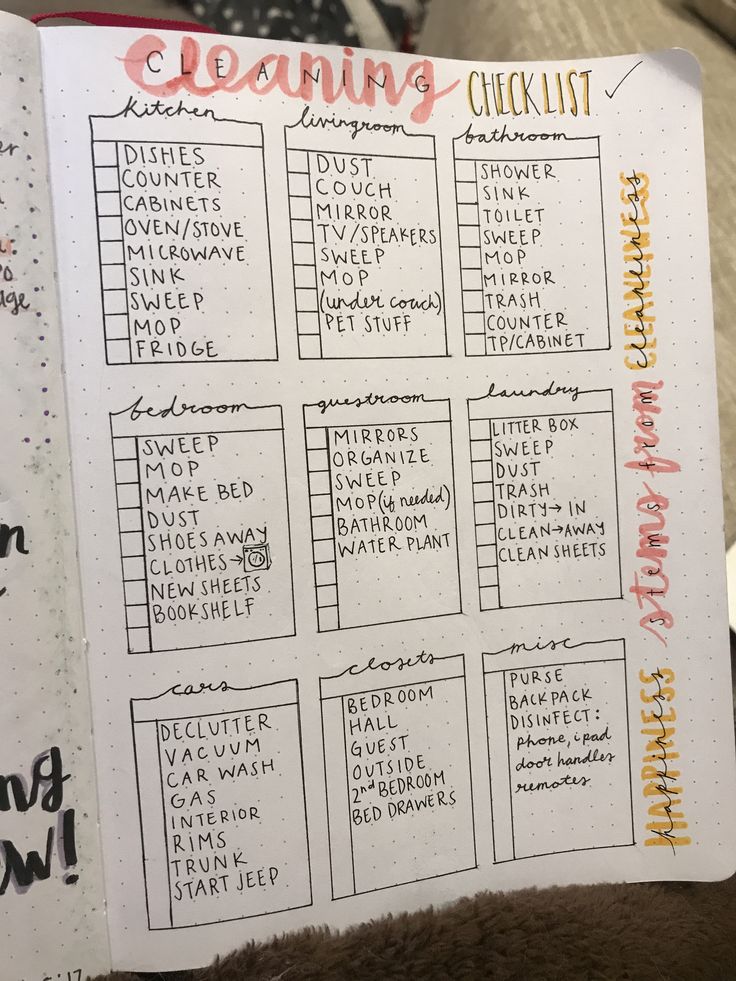 Cleaning
CLEANING
CHECKLIST
kitchen
DISHES
COUNTER
CABINETS
OVEN/STOVE
MICROWAVE
SINK
SWEEP
MOP
FRIDGE
livingroom
DUST
COUCH
MIRROR
TV/SPEAKERS
SWEEP
MOP
(under couch)
PET STUFF
bathroom
SHOWER
SINK
TOILET
SWEEP
MOP
MIRROR
TRASH
COUNTER
TP/CABINET
bedroom
SWEEP
MOP
MAKE BED
DUST
SHOES AWAY
CLOTHES→
NEW SHEETS
BOOKSHELF
guestroom
MIRRORS
ORGANIZE
SWEEP
MOP (if needed)
BATHROOM
WATER PLANT
laundry
LITTER BOX
SWEEP
DUST
TRASH
DIRTY→ IN
CLEAN→AWAY
CLEAN SHEETS
cars
DECLUTTER
VACUUM
CAR WASH
GAS
INTERIOR
RIMS
TRUNK
START JEEP
closets
BEDROOM
HALL
GUEST
OUTSIDE
2nd BEDROOM
BED DRAWERS
misc
PURSE
BACKPACK
DISINFECT:
phone, ipad
door handles
remotes
HAPPINESS stems from CLEANLINESS
happiness stems from cleanliness